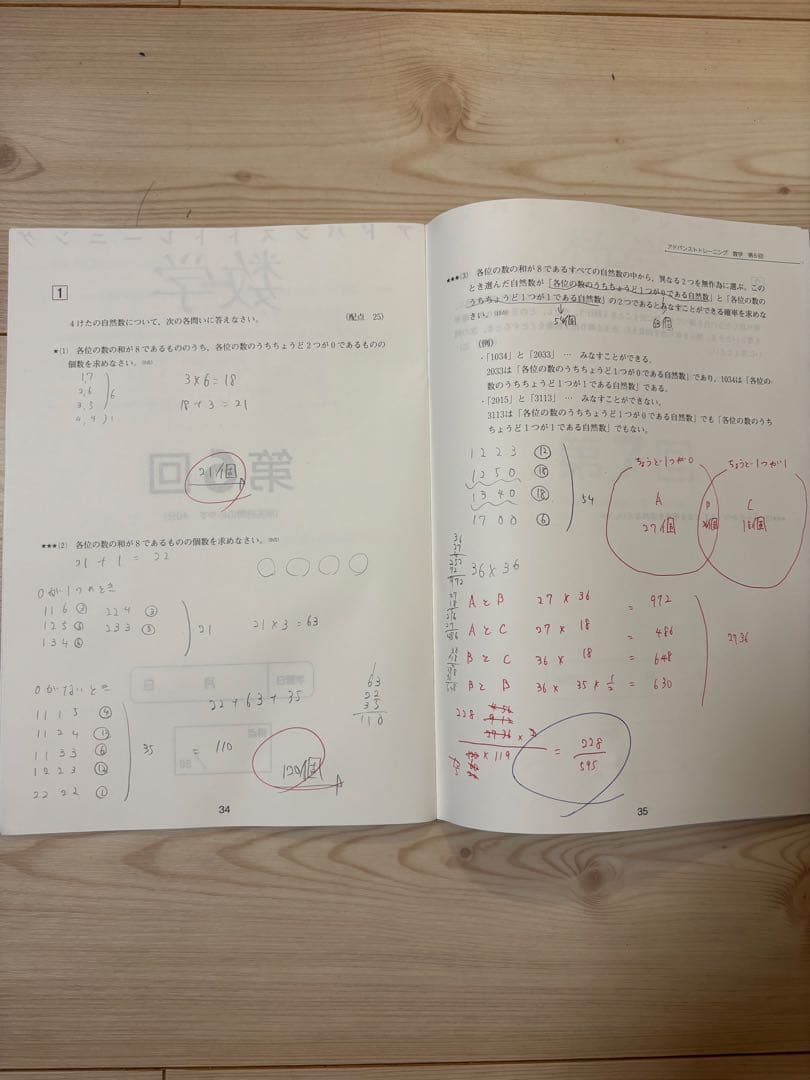 1
4けたの自然数について、次の各問いに答えなさい。
(配点 25)
★(1) 各位の数の和が8であるもののうち、各位の数のうちちょうど2つが0であるものの
個数を求めなさい。
1,7
2,6
3,5
4,4
6
3×6=18
18+3=21
21個
第6回
★★★(2) 各位の数の和が8であるものの個数を求めなさい。
21+1=22
0が1つのとき
116 ③ 224 ③
125 ⑥ 233 ③
134 ⑥
21
21×3=63
0がないとき
1115 ④
1124 ⑫
1133 ⑥
1223 ⑫
2222 ①
35
22+63+35
=110
63
22
35
110
120個
34
アドバンストトレーニング 数学 第6回
★★★(3) 各位の数の和が8であるすべての自然数の中から、異なる2つを無作為に選ぶ。この
とき選んだ自然数が「各位の数のうちちょうど1つが0である自然数」と「各位の数の
うちちょうど1つが1である自然数」の2つであるとみなすことができる確率を求めな
さい。
(例)
・「1034」と「2033」… みなすことができる。
2033は「各位の数のうちちょうど1つが0である自然数」であり、1034は「各位の
数のうちちょうど1つが1である自然数」である。
・「2015」と「3113」… みなすことができない。
3113は「各位の数のうちちょうど1つが0である自然数」でも「各位の数のうち
ちょうど1つが1である自然数」でもない。
1223 ⑫
1250 ⑱
1340 ⑱
1700 ⑥
54
ちょうど1つが0
ちょうど1つが1
A
27個
B
C
18個
36×36
AとB 27×36 = 972
AとC 27×18 = 486
BとC 36×18 = 648
BとB 36×35×1/2 = 630
2736
228
×119
= 228/595
35